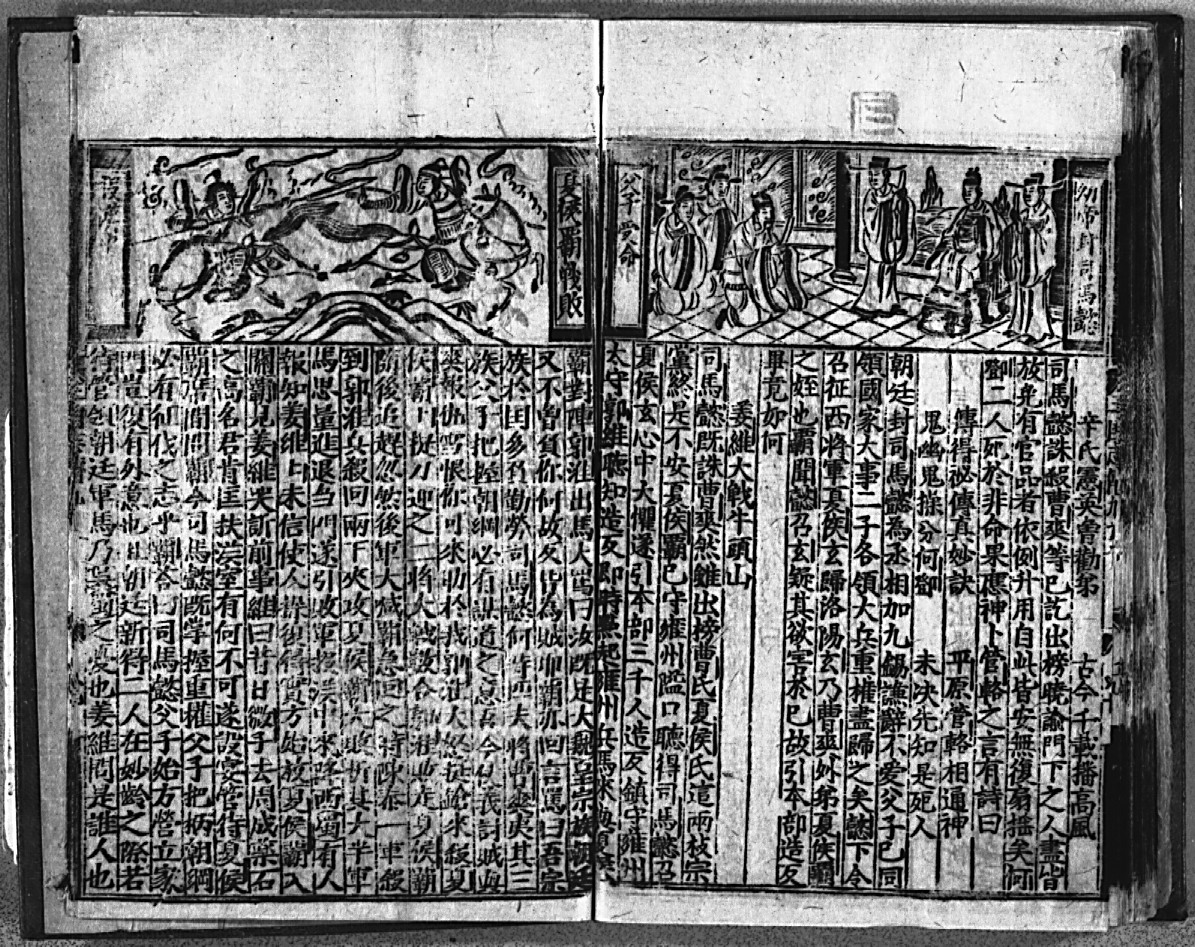 幼帝封司馬懿
父子受命
辛氏憲英魯勸弟　古今千載播高風
司馬懿誅殺曹爽等已訖出榜曉諭門下之人盡皆
放免有官品者依例升用自此皆安無復扇搖矣何
鄧二人死於非命果應神卜管輅之言有詩曰
傳得祕傳真妙訣　平原管輅相通神
鬼幽鬼操分何鄧　未決先知是死人
朝廷封司馬懿為丞相加九錫讓辭不受父子已同
領國家大事二子各領大兵重權盡歸之矣懿下令
召征西將軍夏侯玄歸洛陽玄乃曹爽外弟夏侯霸
之姪也霸聞懿召玄疑其欲害於己故引本部造反
畢竟如何
姜維大戰牛頭山
司馬懿既誅曹爽然雖出榜曹氏夏侯氏這兩枝宗
黨終是不安夏侯霸已守雍州隘口聽得司馬懿召
夏侯玄心中大懼遂引本部三千人造反鎮守雍州
太守郭淮聽知造反即時點起雍州兵馬來
夏侯霸戰敗
霸對陣郭淮出馬大罵曰汝既是大魏皇宗族朝廷
又不曾負你何故反
族於國多有勤勞司馬懿何等匹夫將曹爽夷其三
族父子把握朝綱必有謀逆之意吾今仗義討賊與
爽報仇雪恨你可來助於我郭淮大怒挺鎗來殺夏
侯霸霸挺刀迎之二將大戰數合郭淮敗走夏侯霸
隨後追趕忽然後軍大喊霸急回之時陳泰一軍殺
到郭淮兵殺回兩下夾攻夏侯霸大敗折其大半軍
馬思量進退無門遂引敗軍投漢中來降西蜀有人
報知姜維維未信使人
關霸見姜維哭訴前事維曰昔日微子去周成
之高名君肯匡扶漢室有何不可遂設宴管待夏侯
霸席間問霸今司馬懿既掌握重權父子把柄朝綱
必有征伐之志乎霸答曰司馬懿父子始方營立家
門豈復有外意也且朝廷新得二人在妙齡之際若
待管領朝廷軍馬乃吳蜀之憂也姜維問是誰人也